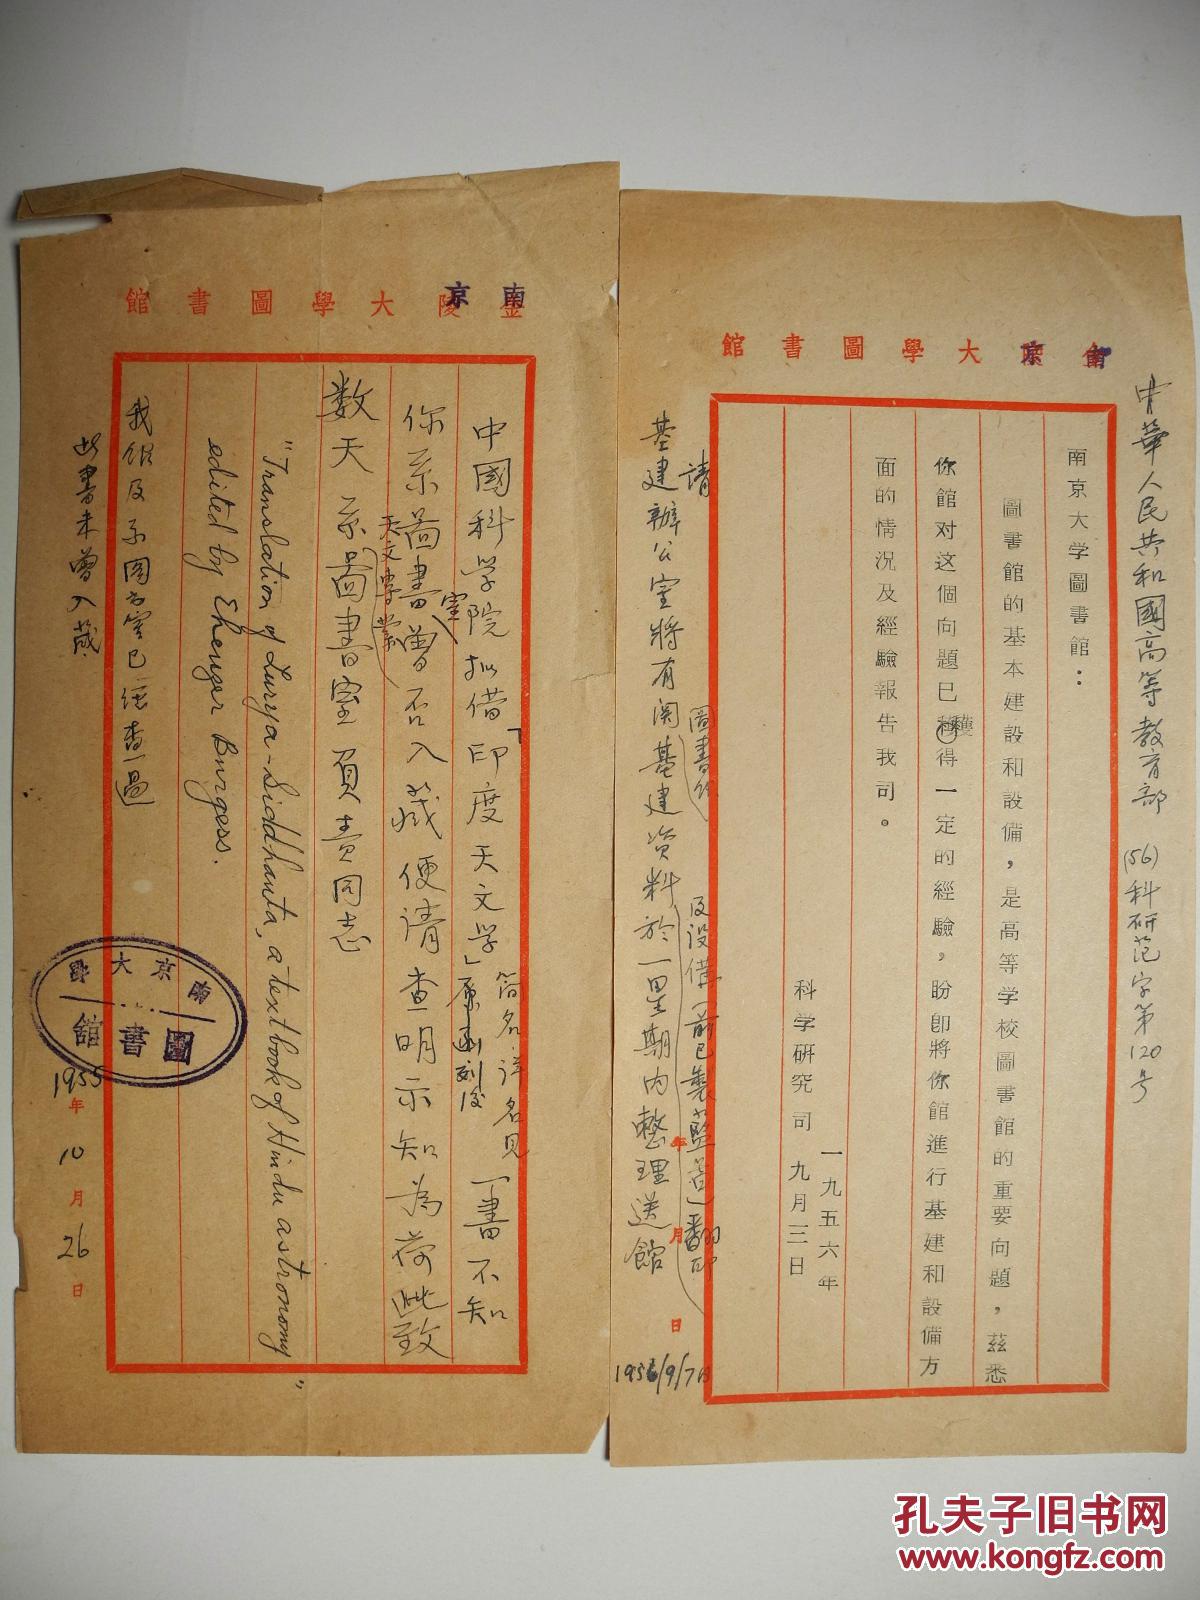 中華人民共和國高等教育部(56)科研范字第120号
南京大學圖書館
南京大学圖書館：
圖書館的基本建設和設備，是高等学校圖書館的重要问題，茲悉
你館对这個问題已穫得一定的經驗，盼即將你館進行基建和設備方
面的情況及經驗報告我司。
科学研究司
一九五六年
九月三日
請
基建辦公室將有関圖書館基建資料及設備（前已製藍苔）翻印於一星期内整理送館
年 月 日
1956/9/7日
南京大學圖書館
中國科学院拟借「印度天文学」簡名，詳名見原函列後一書不知
你系圖書室曾否入藏便請查明示知為荷此致
数天系天文專業圖書室負責同志
"Translation of Surya-Siddhanta, a textbook of Hindu astronomy"
edited by Ehenger Burgess.
我館及系圖書室已經查過
此書未曾入藏
南京大學
圖書館
1955年10月26日
孔夫子旧书网
www.kongfz.com